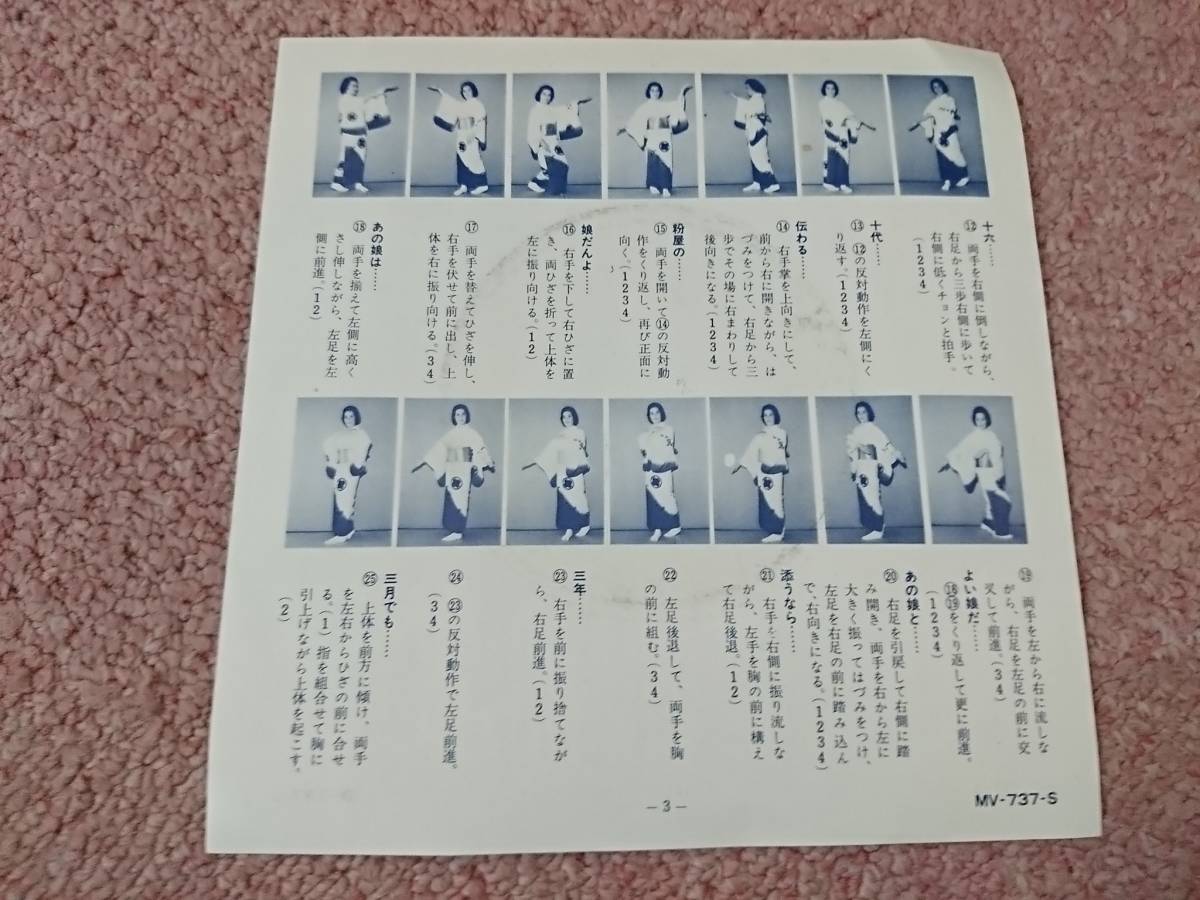 十六……
⑫　両手を右側に倒しながら、
右足から三歩右側に歩いて
右側に低くチョンと拍手。
(1234)
十代……
⑬　⑫の反対動作を左側にく
り返す。(1234)
伝わる……
⑭　右手掌を上向きにして、
前から右に開きながら、は
づみをつけて、右足から三
歩でその場に右まわりして
後向きになる。(1234)
粉屋の……
⑮　両手を開いて⑭の反対動
作をくり返し、再び正面に
向く。(1234)
娘だんよ……
⑯　右手を下して右ひざに置
き、両ひざを折って上体を
左に振り向ける。(12)
⑰　両手を替えてひざを伸し、
右手を伏せて前に出し、上
体を右に振り向ける。(34)
あの娘は……
⑱　両手を揃えて左側に高く
さし伸しながら、左足を左
側に前進。(12)
⑲　両手を左から右に流しな
がら、右足を左足の前に交
叉して前進。(34)
よい娘だ……
⑱⑲をくり返して更に前進。
(1234)
あの娘と……
⑳　右足を引戻して右側に踏
み開き、両手を右から左に
大きく振ってはづみをつけ、
左足を右足の前に踏み込ん
で、右向きになる。(1234)
添うなら……
㉑　右手を右側に振り流しな
がら、左手を胸の前に構え
て右足後退。(12)
㉒　左足後退して、両手を胸
の前に組む。(34)
三年……
㉓　右手を前に振り捨てなが
ら、右足前進。(12)
㉔　㉓の反対動作で左足前進。
(34)
三月でも……
㉕　上体を前方に傾け、両手
を左右からひざの前に合せ
る。(1)指を組合せて胸に
引上げながら上体を起こす。
(2)
—3—
MV-737-S